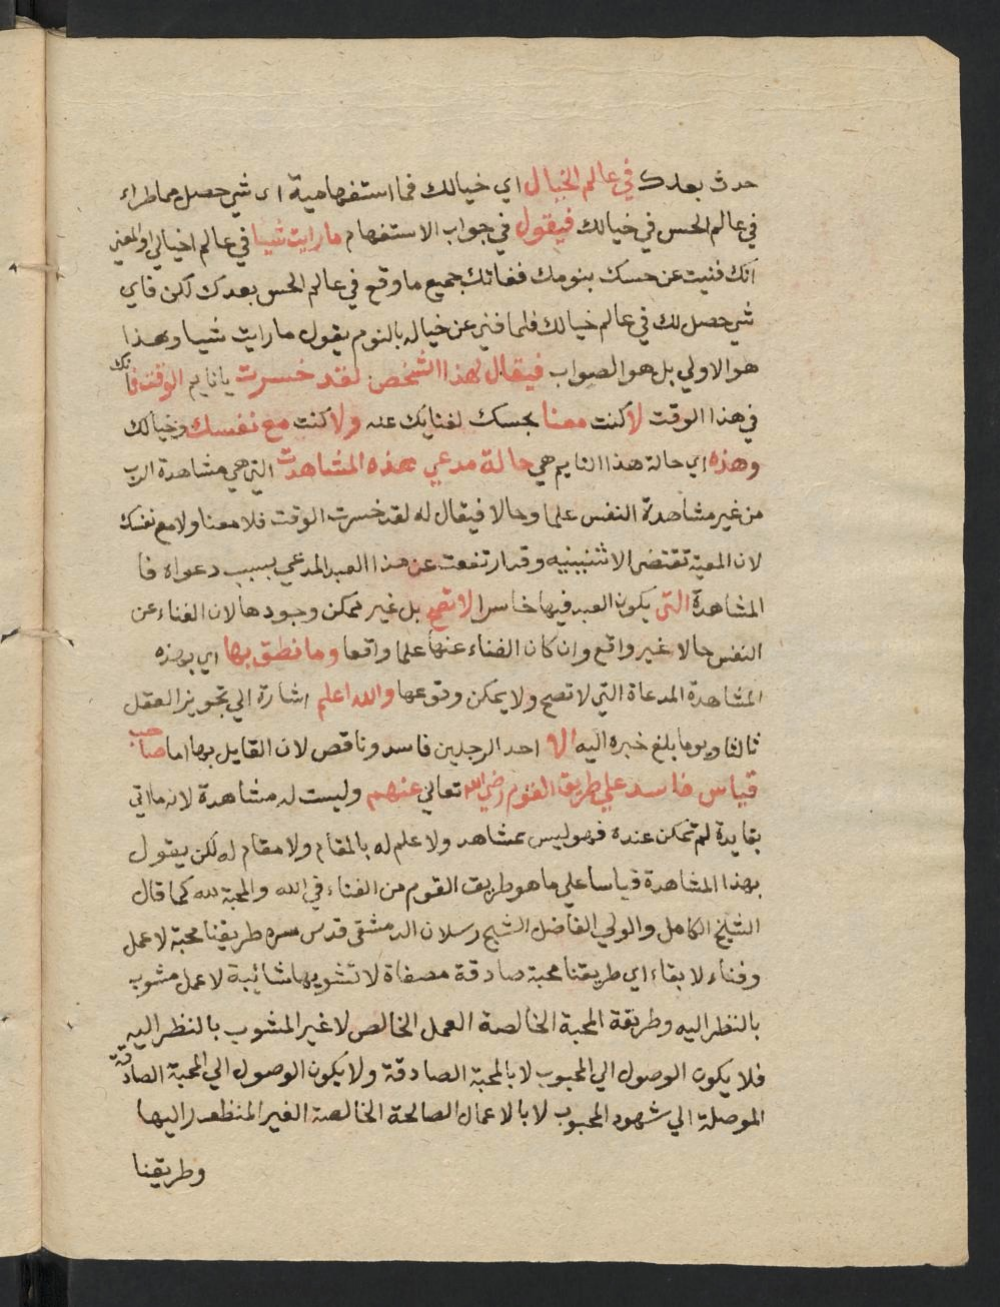 حدث بعدك في عالم الخيال اي خيالك فما استفهامية اى شي حصل مما طراء
في عالم الحس في خيالك فيقول في جواب الاستفهام ما رايت شيا في عالم اخيالي والمعني
انك فنيت عن حسك بنومك ففاتك جميع ما وقع في عالم الحس بعدك لكن فاي
شي حصل لك في عالم خيالك فلما فني عن خياله بالنوم يقول ما رايت شيا وهذا
هو الاولي بل هو الصواب فيقال لهذا الشخص لقد خسرت يا نايم الوقت فانك
في هذا الوقت لا كنت معنا بحسك لفنايك عنه ولا كنت مع نفسك وخيالك
وهذه اي حالة هذا النايم هي حالة مدعي هذه المشاهدت التي هي مشاهدة الرب
من غير مشاهدة النفس علما وحالا فيقال له لقد خسرت الوقت فلا معنا ولا مع نفسك
لان المعية تقتضي الاثنينيه وقد ارتفعت عن هذا العبد المدعي بسبب دعواه فا
المشاهدة التى يكون العبد فيها خاسرا لا تقع بل غير ممكن وجودها لان الفناء عن
النفس حالا غير واقع وان كان الفناء عنها علما واقعا وما نطق بها اي بهذه
المشاهدة المدعاة التي لا تصح ولا يمكن وقوعها والله اعلم اشارة الي تجويز العقل
ثالثا ويوما بلغ خبره اليه الا احد الرجلين فاسد وناقص لان القايل بها اما صاحب
قياس فاسد علي طريق القوم رضي الله تعالي عنهم وليست له مشاهدة لانه ما اتي
بفايدة لم تمكن عنده فهو ليس بمشاهد ولا علم له بالمقام ولا مقام له لكن يقول
بهذا المشاهدة قياسا علي ما هو طريق القوم من الفناء في الله والمحبة لله كما قال
الشيخ الكامل والولي الفاضل الشيخ رسلان الدمشقي قدس سره طريقنا محبة لا عمل
وفناء لا بقاء اي طريقنا محبة صادقة مصفاة لا تشوبها شائبة لا عمل مشوب
بالنظر اليه وطريقة المحبة الخالصة العمل الخالص لا غير المشوب بالنظر اليه
فلا يكون الوصول الي المحبوب لا بالمحبة الصادقة ولا يكون الوصول الي المحبة الصادقة
الموصلة الي شهود المحبوب لا بالاعمال الصالحة الخالصة الغير المنظور اليها
وطريقنا